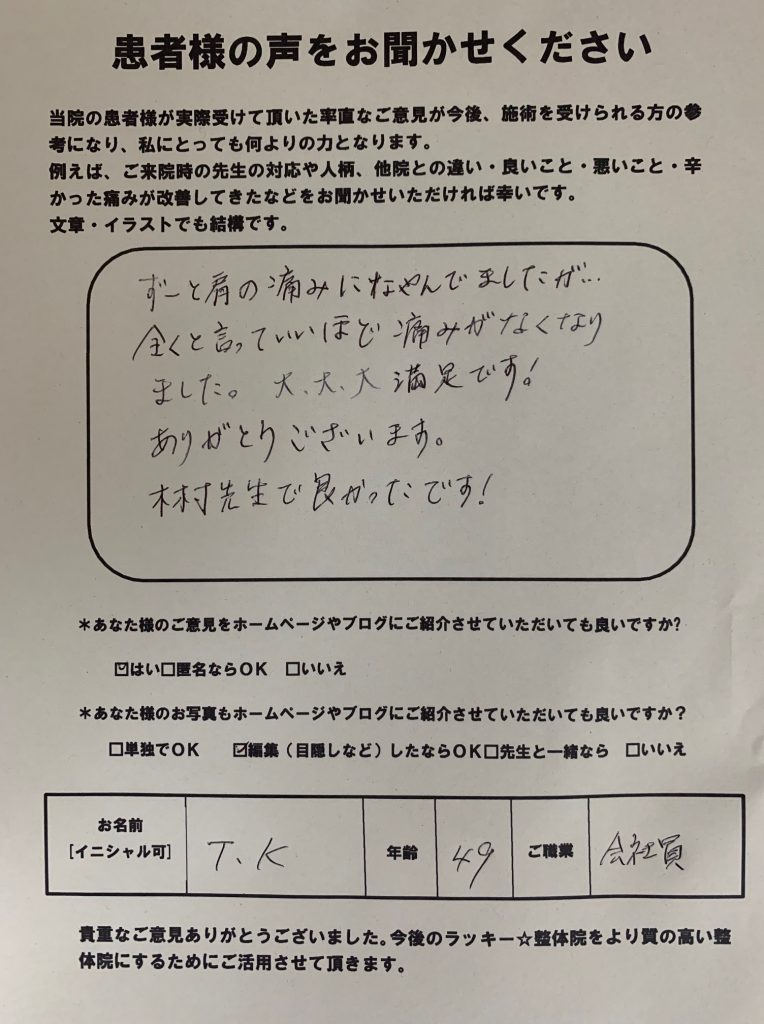 患者様の声をお聞かせください
当院の患者様が実際受けて頂いた率直なご意見が今後、施術を受けられる方の参
考になり、私にとっても何よりの力となります。
例えば、ご来院時の先生の対応や人柄、他院との違い・良いこと・悪いこと・辛
かった痛みが改善してきたなどをお聞かせいただければ幸いです。
文章・イラストでも結構です。
ずーと肩の痛みになやんでましたが…
全くと言っていいほど痛みがなくなり
ました。大、大、大満足です!
ありがとりございます。
木村先生で良かったです!
＊あなた様のご意見をホームページやブログにご紹介させていただいても良いですか?
☑はい□匿名ならOK □いいえ
＊あなた様のお写真もホームページやブログにご紹介させていただいても良いですか？
□単独でOK ☑編集（目隠しなど）したならOK□先生と一緒なら □いいえ
お名前
[イニシャル可]
T.K
年齢
49
ご職業
会社員
貴重なご意見ありがとうございました。今後のラッキー☆整体院をより質の高い整
体院にするためにご活用させて頂きます。